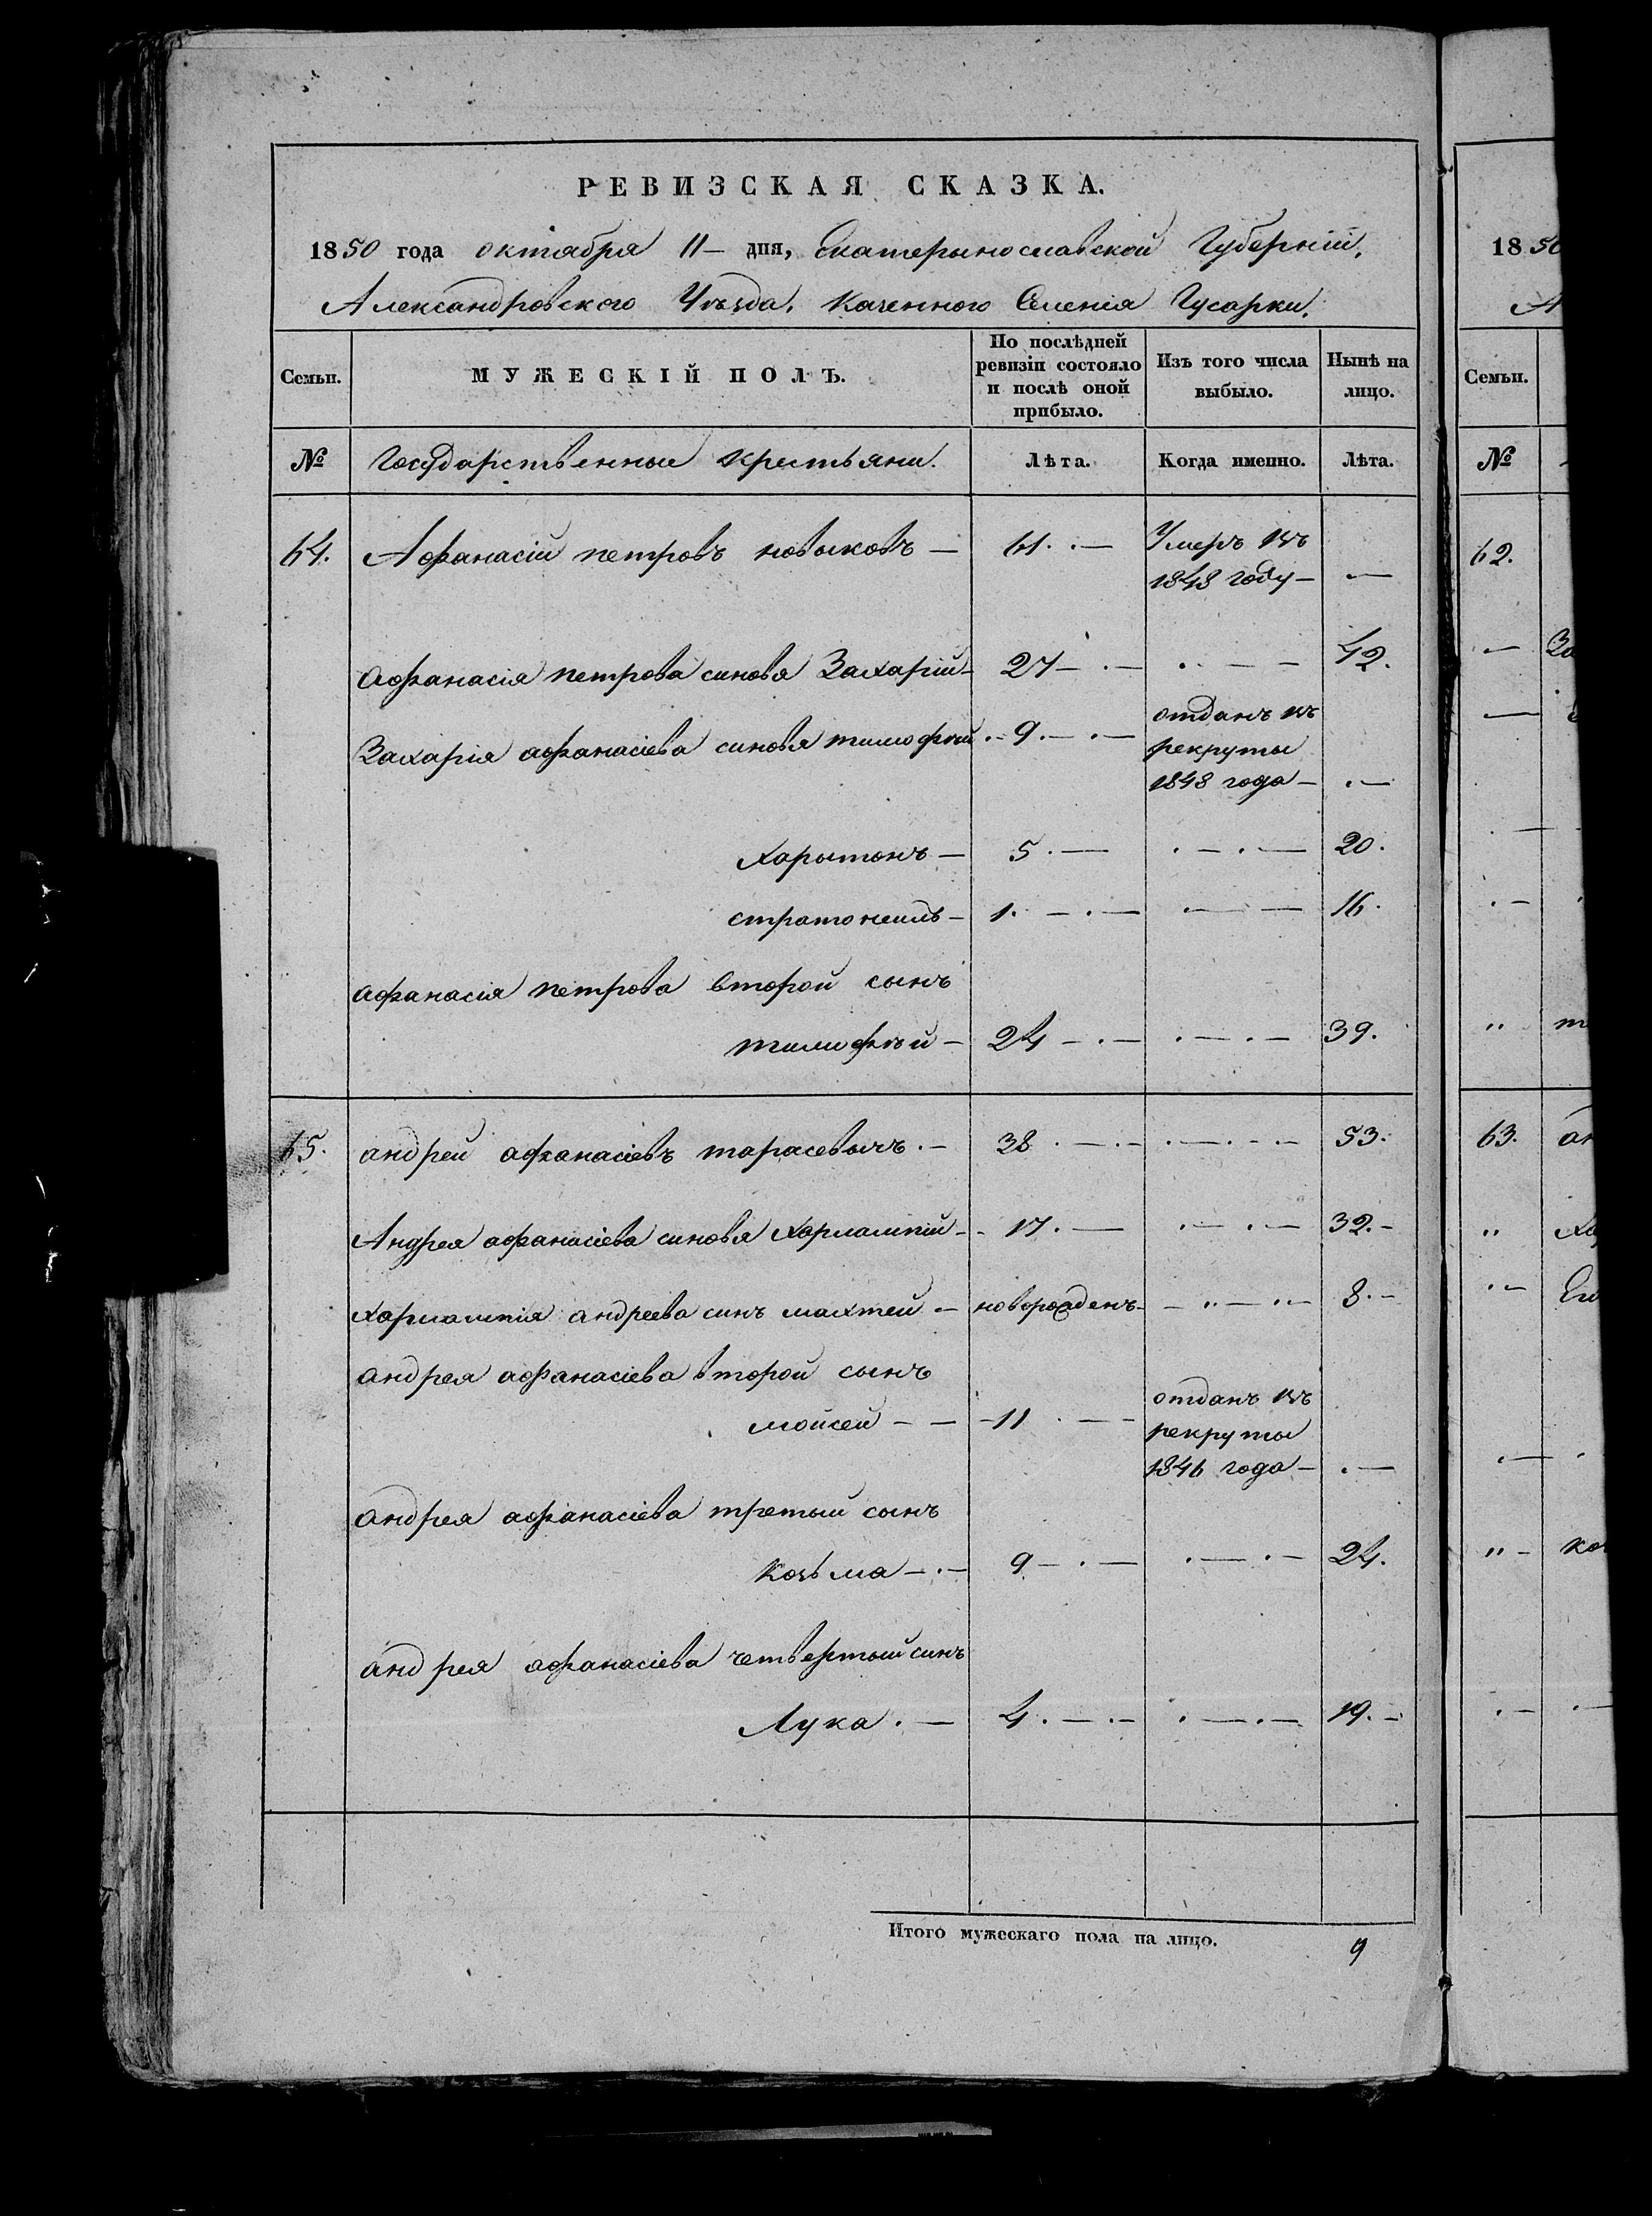 РЕВИЗСКАЯ СКАЗКА.
1850 года октября 11 — дня, Екатерынославской Губерніи.
Александровского Уѣзда. Казенного Селенія Гусарки.
Семьи.
МУЖЕСКІЙ ПОЛЪ.
По послѣдней ревизіи состояло и послѣ оной прибыло.
Изъ того числа выбыло.
Нынѣ на лицо.
№ Государственные крестьяни. Лѣта. Когда именно. Лѣта.
64. Афанасій петровъ новыковъ — 61. — Умеръ въ
1848 году — —
афанасія петрова синовя Захарій — 27 — . — . — — 42.
Захарія афанасіева синовя тимофѣй . — 9. — . — отданъ въ
рекруты
1848 года — . —
Харытонъ — 5 . — . — . — 20.
стратонешъ — 1. — . — . — — 16.
афанасия петрова второй сынъ
тимофѣй — 24 — . — . — . — 39.
65. андрей афанасіевъ тарасевычъ . — 38 . — . — . — . — 53.
Андрея афанасіева синовя Харлампій — 17. — . — . — 32. —
харлампія андреева синъ махтей — новорожденъ — „ — „ — 8. —
андрея афанасіева второй сынъ
мойсей — — 11 . — отданъ въ
рекруты
1846 года — . —
андрея афанасіева третый сынъ
Козьма — . — 9 — . — . — . — 24.
андрея афанасіева четвертый синъ
Лука . — 4 . — . — . — . — 19. —
Итого мужескаго пола на лицо. 9
1850
А
Семьи.
№
62.
— За
63. ан
„ ха
„ —
„ — ко